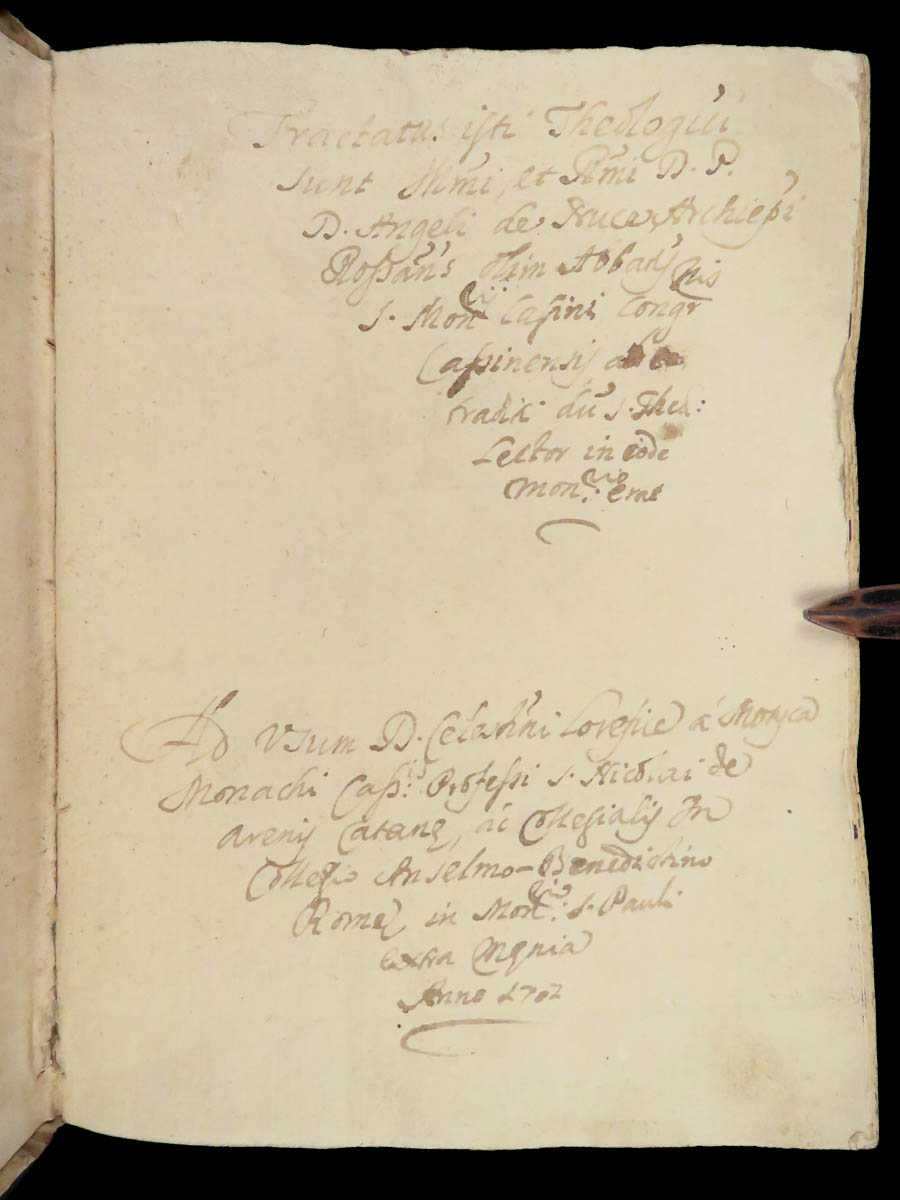 Tractatus isti Theologici
sunt Illmi, et Rmi D. P.
D. Angeli de Nuce Archiepi
Rossans olim Abbatis
S. Monrij Casini Congrnis
Cassinensis
tradit. dũ S. Theol:
Lector in eode
Monrio. erat
Ad Usum D. Celestini Lorefice a Motyca
Monachi Cassis. Professi S. Nicolai de
Arenis Catanę, ac Collegialis In
Collegio Anselmo-Benedictino
Romę in Monrio: S. Pauli
extra Męnia
Anno 1702